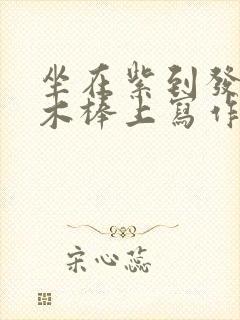 坐在紫到發
木棒上寫作
宋心蕊